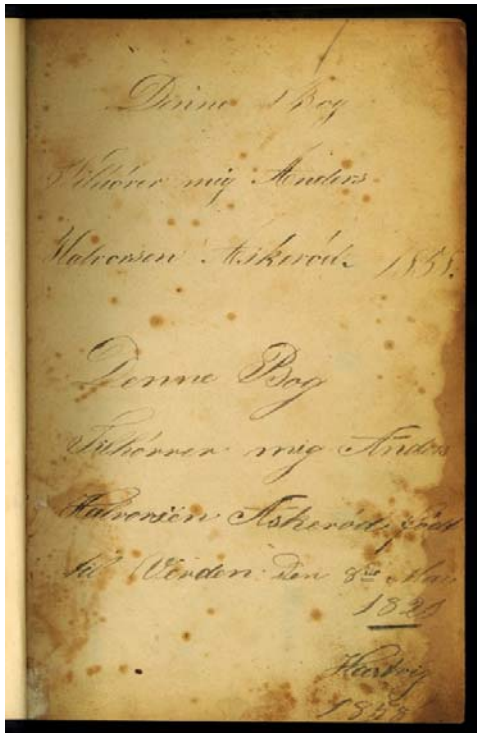 Denne Bog
Tilhører mig Anders
Halvorsen Askerød. 1858.
Denne Bog
Tilhörrer mig Anders
Halvorsen Askerød, född
til Verden Den 8de Mai
1821
Hartvig
1858